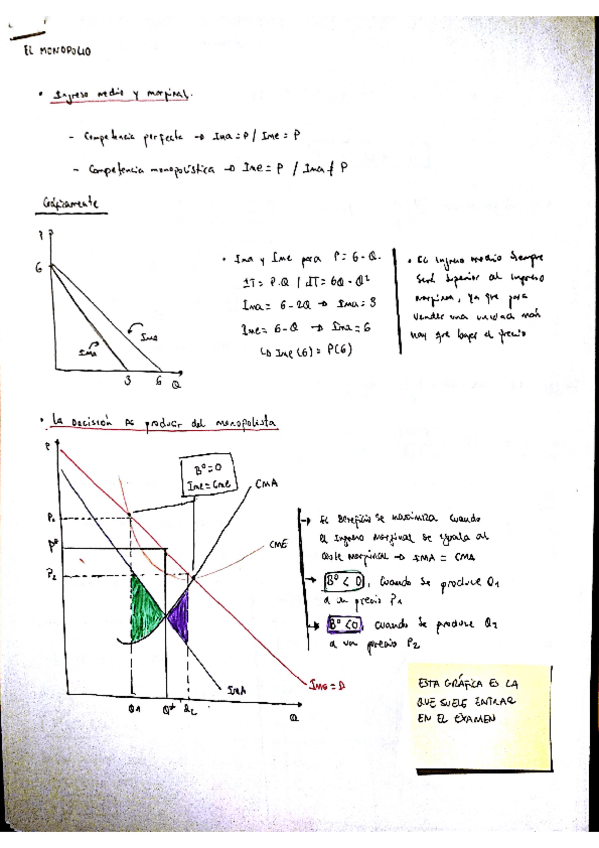 EL MONOPOLIO
• Ingreso medio y marginal.
- Competencia perfecta → Ima = P / Ime = P
- Competencia monopolística → Ime = P / Ima ≠ P
Gráficamente
P
6
Ima
Ime
3 6 Q
• Ima y Ime para P = 6 - Q.
IT = P.Q / IT = 6Q - Q²
Ima = 6 - 2Q → Ima = 3
Ime = 6 - Q → Ima = 6
↳ Ime (6) = P(6)
• El Ingreso medio siempre
será superior al Ingreso
marginal, ya que para
vender una unidad más
hay que bajar el precio
• La decisión de producir del monopolista
P
B° = 0
Ime = Cme
CMA
CME
P₁
P*
P₂
IMA
IME = D
Q1 Q* Q2
Q
→ El Beneficio se maximiza cuando
el Ingreso marginal se iguala al
coste marginal → IMA = CMA
→ B° < 0, cuando se produce Q1
a un precio P1
→ B° < 0, cuando se produce Q2
a un precio P2
ESTA GRÁFICA ES LA
QUE SUELE ENTRAR
EN EL EXAMEN